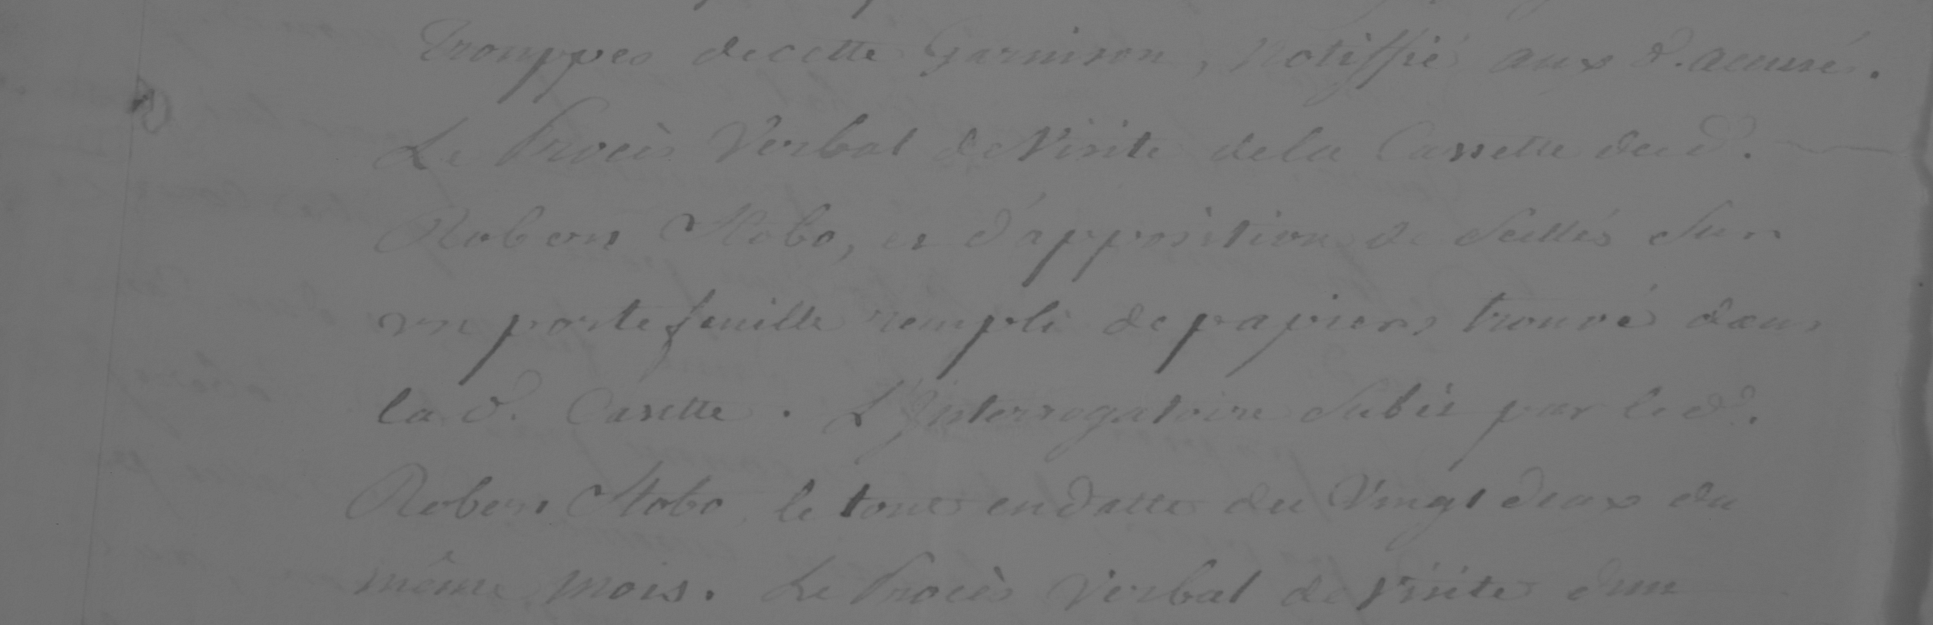 Trouppes de cette Garnison, Notiffié aux d. accusés.
Le Procès Verbal de Visite de la Cassette du d.
Robert Stobo, et d'apposition de Scellés Sur
un porte feuille rempli de papiers trouvé dans
la d. Casette. L'Interrogatoire Subis par le d.
Robert Stobo le tout en datte du Vingt deux du
même mois. Le Procès Verbal de Visite d'un